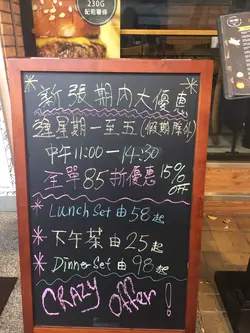 230G
配粗薯條
新張期內大優惠
逢星期一至五(假期除外)
中午11:00-14:30
全單85折優惠 15% OFF
Lunch Set 由58起
下午茶 由25起
Dinner Set 由98起
CRAZY Offer!